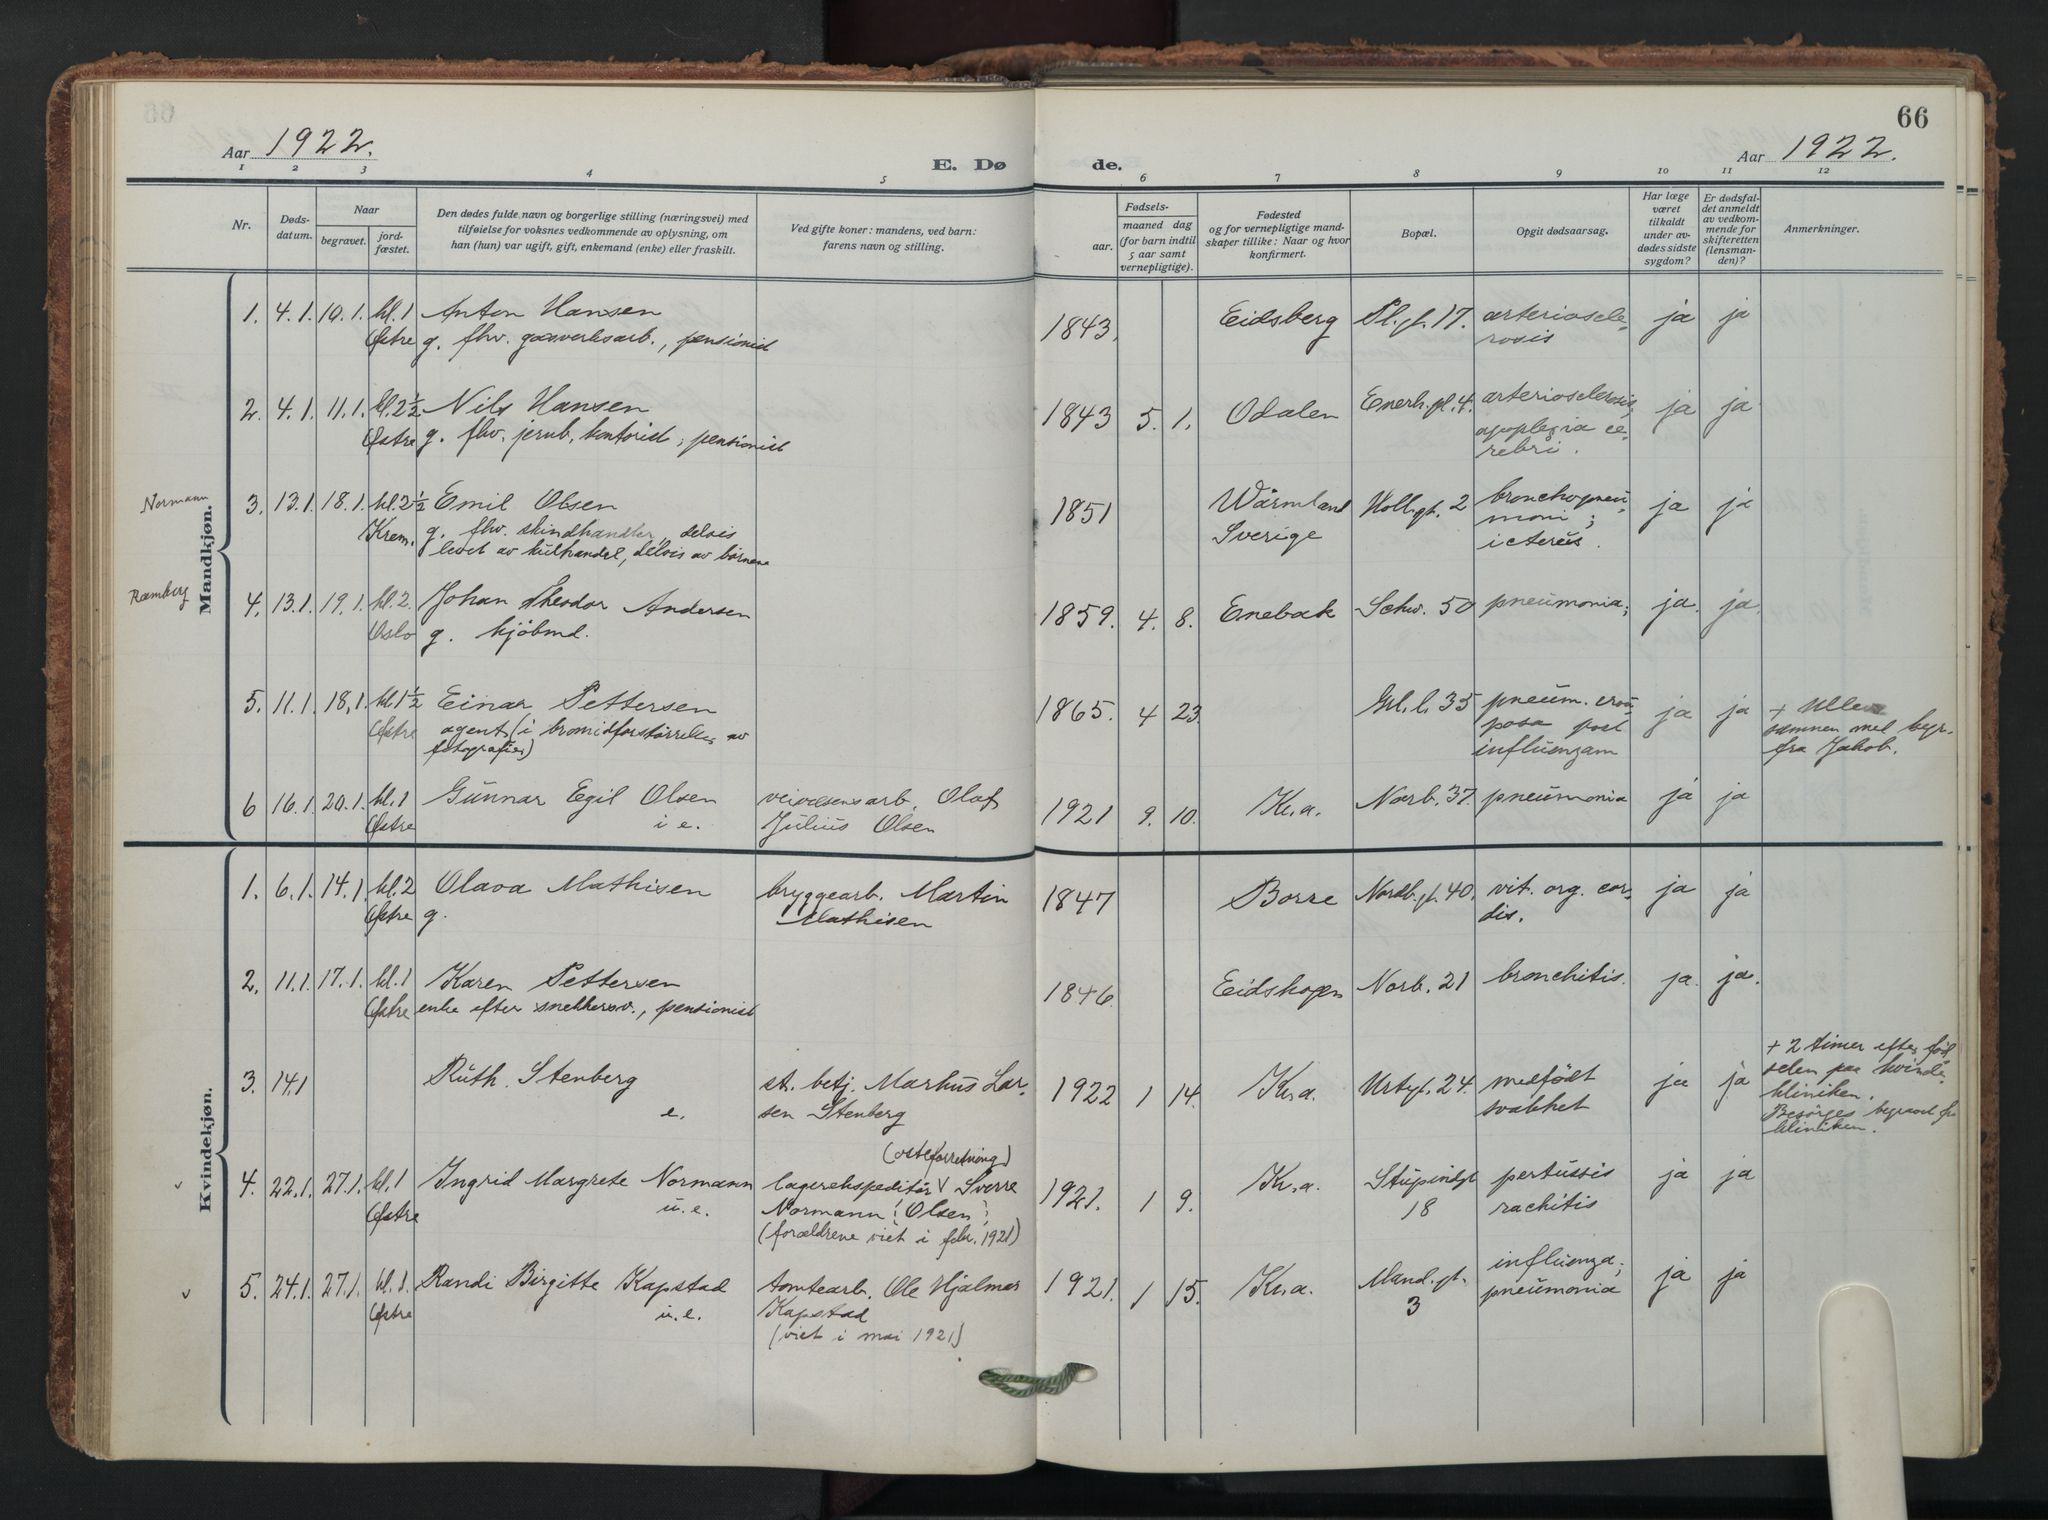 66
Aar 1922.
E. Dø de.
Aar 1922.
1 2 3 4 5 6 7 8 9 10 11 12
Nr.
Døds-
datum.
Naar
begravet.
jord-
fæstet.
Den dødes fulde navn og borgerlige stilling (næringsvei) med
tilføielse for voksnes vedkommende av oplysning, om
han (hun) var ugift, gift, enkemand (enke) eller fraskilt.
Ved gifte koner: mandens, ved barn:
farens navn og stilling.
Fødsels-
aar.
maaned dag
(for barn indtil
5 aar samt
vernepligtige).
Fødested
og for vernepligtige mand-
skaper tillike: Naar og hvor
konfirmert.
Bopæl.
Opgit dødsaarsag.
Har læge
været
tilkaldt
under av-
dødes sidste
sygdom?
Er dødsfal-
det anmeldt
av vedkom-
mende for
skifteretten
(lensman-
den)?
Anmerkninger.
Mandkjøn.
1. 4.1. 10.1. kl.1 Anton Hansen 1843. Eidsberg Pl.gt. 17. arterioscle- ja ja
Østre g. fhv. gasverksarb., pensionist rosis
2. 4.1. 11.1. kl.2½ Nils Hansen 1843 5. 1. Odalen Enerh.pl.4. arteriosclerosis, ja ja
Østre g. fhv. jernb. kontorist, pensionist apoplexia ce-
rebri.
Normann
3. 13.1. 18.1. kl.2½ Emil Olsen 1851 Wärmland Holl.gt. 2 bronchopneu- ja ja
Krem. g. fhv. skindhandler, delvis Sverige moni;
levet av kulhandel, delvis av børnene icterus.
Ramberg
4. 13.1. 19.1. kl.2. Johan Theodor Andersen 1859. 4. 8. Enebak Schw. 50 pneumonia; ja. ja.
Oslo g. kjöbmd.
5. 11.1. 18.1. kl.1½ Einar Pettersen 1865. 4 23. Grl.l. 35 pneum. crou- ja ja + Ullev
Østre agent (i bromidforstørrelse av posa post sammen med byr.
fotografier) influenzam fra Jakob.
6 16.1. 20.1. kl.1 Gunnar Egil Olsen veivæsensarb. Olaf 1921 9. 10. Kr.a. Norb. 37. pneumonia ja ja
Østre i e. Julius Olsen
Kvindekjøn.
1. 6.1. 14.1. kl.2 Olava Mathisen bryggearb. Martin 1847 Borre Nordb.gt. 40. vit. org. cor- ja ja
Østre g. Mathisen dis.
2. 11.1. 17.1. kl.1 Karen Pettersen 1846. Eidskogen Norb. 21 bronchitis. ja. ja.
Østre enke efter snekkersv., pensionist
3. 14.1 Ruth Stenberg st. betj. Markus Lar- 1922 1 14. Kr.a. Urtegt. 24. medfödt ja ja
e. sen Stenberg svakhet
+ 2 timer efter föd
selen paa kvinde-
kliniken.
Besørges begravet fra
kliniken.
(osteforretning)
v 4. 22.1. 27.1. kl.1 Ingrid Margrete Normann lagerekspeditör v Sverre 1921. 1 9. Kr.a. Stupindgt pertussis ja ja
Østre u.e. Normann (Olsen) 18 rachitis
(forældrene viet i febr. 1921)
v 5. 24.1. 27.1. kl.1. Randi Birgitte Kapstad tomtearb. Ole Hjalmar 1921. 1 15. Kr.a. Mand.gt. influenza; ja ja
Østre u.e. Kapstad 3 pneumonia
(viet i mai 1921)